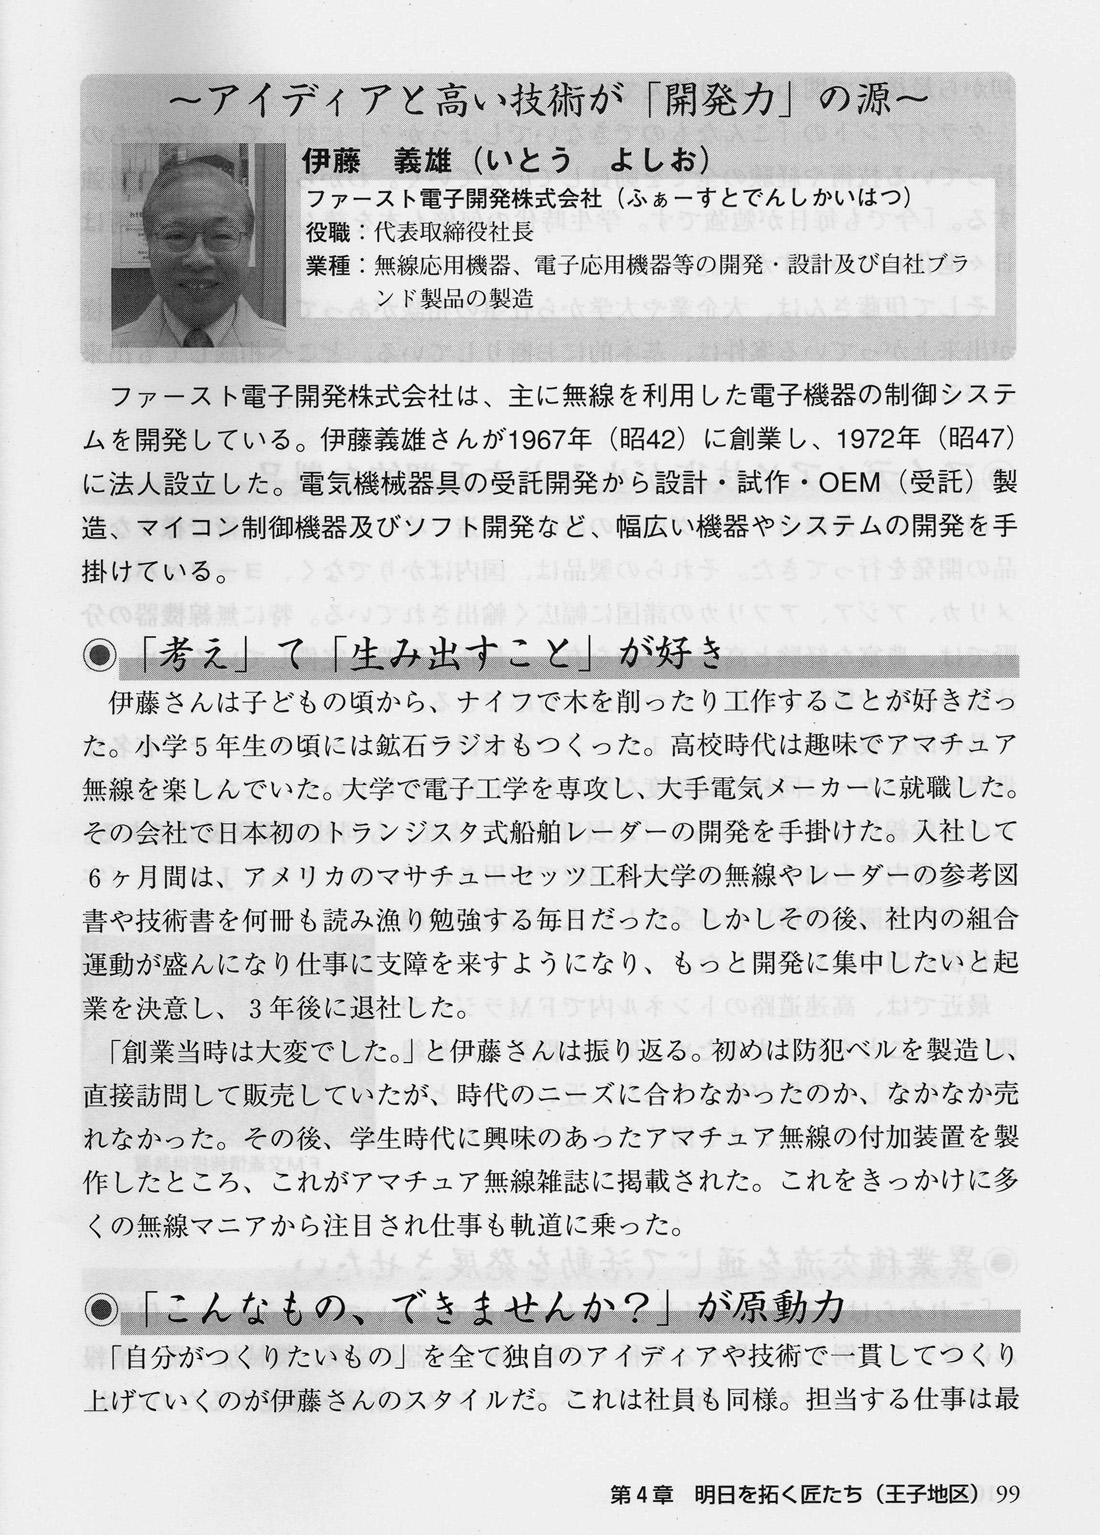 ～アイディアと高い技術が「開発力」の源～
伊藤　義雄（いとう　よしお）
ファースト電子開発株式会社（ふぁーすとでんしかいはつ）
役職：代表取締役社長
業種：無線応用機器、電子応用機器等の開発・設計及び自社ブラ
ンド製品の製造
ファースト電子開発株式会社は、主に無線を利用した電子機器の制御システ
ムを開発している。伊藤義雄さんが1967年（昭42）に創業し、1972年（昭47）
に法人設立した。電気機械器具の受託開発から設計・試作・OEM（受託）製
造、マイコン制御機器及びソフト開発など、幅広い機器やシステムの開発を手
掛けている。
◉「考え」て「生み出すこと」が好き
伊藤さんは子どもの頃から、ナイフで木を削ったり工作することが好きだっ
た。小学５年生の頃には鉱石ラジオもつくった。高校時代は趣味でアマチュア
無線を楽しんでいた。大学で電子工学を専攻し、大手電気メーカーに就職した。
その会社で日本初のトランジスタ式船舶レーダーの開発を手掛けた。入社して
６ヶ月間は、アメリカのマサチューセッツ工科大学の無線やレーダーの参考図
書や技術書を何冊も読み漁り勉強する毎日だった。しかしその後、社内の組合
運動が盛んになり仕事に支障を来すようになり、もっと開発に集中したいと起
業を決意し、３年後に退社した。
「創業当時は大変でした。」と伊藤さんは振り返る。初めは防犯ベルを製造し、
直接訪問して販売していたが、時代のニーズに合わなかったのか、なかなか売
れなかった。その後、学生時代に興味のあったアマチュア無線の付加装置を製
作したところ、これがアマチュア無線雑誌に掲載された。これをきっかけに多
くの無線マニアから注目され仕事も軌道に乗った。
◉「こんなもの、できませんか？」が原動力
「自分がつくりたいもの」を全て独自のアイディアや技術で一貫してつくり
上げていくのが伊藤さんのスタイルだ。これは社員も同様。担当する仕事は最
第４章　明日を拓く匠たち（王子地区）99